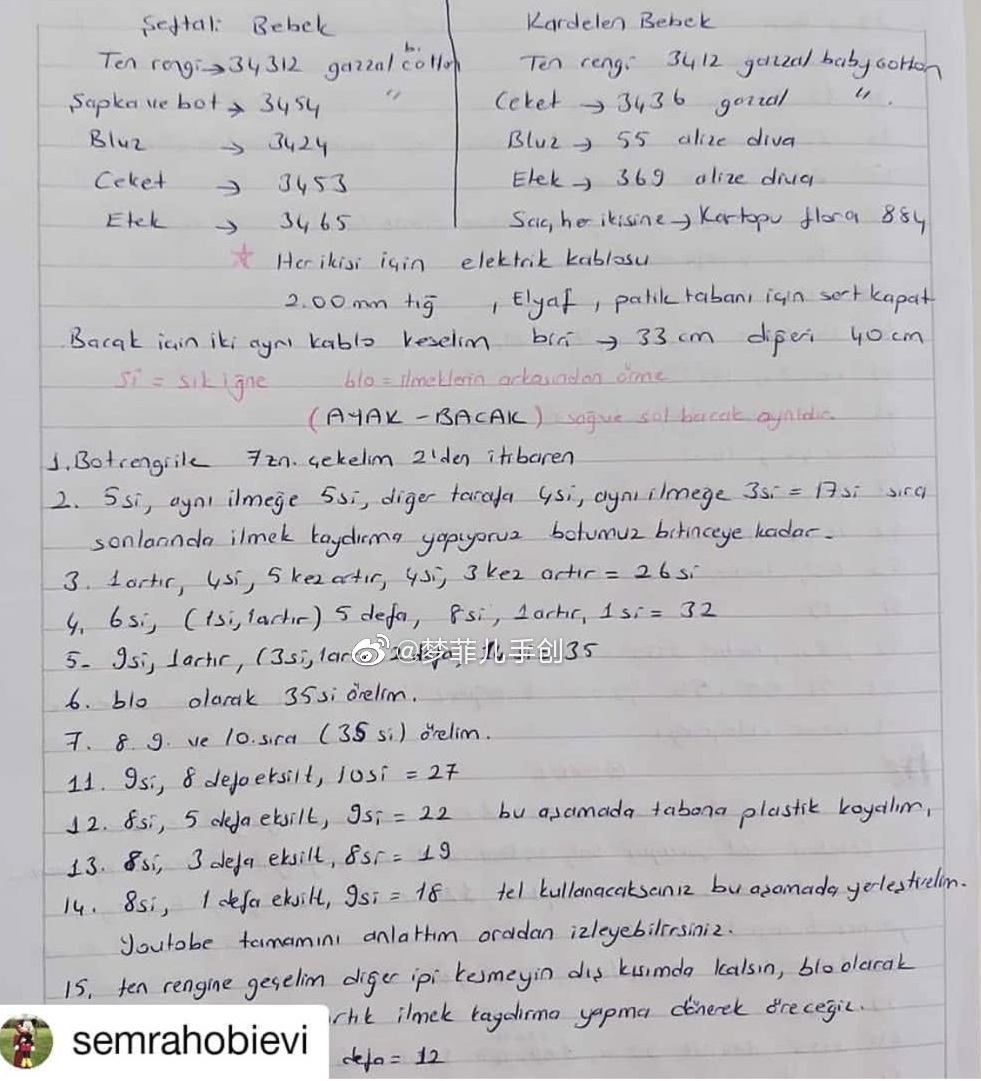 Şeftali Bebek
Ten rengi → 34312 gazzal b. cotton
Şapka ve bot → 3454 "
Bluz → 3424
Ceket → 3453
Etek → 3465
Kardelen Bebek
Ten rengi 3412 gazzal baby cotton
Ceket → 3436 gazzal ".
Bluz → 55 alize diva
Etek → 369 alize diva
Saç, her ikisine → Kartopu flora 884
☆ Her ikisi için elektrik kablosu
2.00 mm tığ , Elyaf , patik tabanı için sert kapat
Bacak için iki aynı kablo keselim biri → 33 cm diğeri 40 cm
si = sık iğne blo = ilmeklerin arkasından örme
(AYAK - BACAK) sağ ve sol bacak aynıdır.
1. Bot rengi ile 7 zn. çekelim 2'den itibaren
2. 5si, aynı ilmeğe 5si, diğer tarafa 4si, aynı ilmeğe 3si = 17si sıra
sonlarında ilmek kaydırma yapıyoruz botumuz bitinceye kadar.
3. 1 artır, 4si, 5 kez artır, 4si, 3 kez artır = 26 si
4. 6si, (1si, 1artır) 5 defa, 8si, 1artır, 1si = 32
5- 9si, 1artır, (3si, 35
@梦菲儿手创
6. blo olarak 35si örelim.
7. 8. 9. ve 10. sıra (35 si) örelim.
11. 9si, 8 defa eksilt, 10si = 27
12. 8si, 5 defa eksilt, 9si = 22 bu aşamada tabana plastik koyalım,
13. 8si, 3 defa eksilt, 8si = 19
14. 8si, 1 defa eksilt, 9si = 18 tel kullanacaksanız bu aşamada yerleştirelim.
Youtobe tamamını anlattım oradan izleyebilirsiniz.
15. ten rengine geçelim diğer ipi kesmeyin dış kısımda kalsın, blo olarak
ilmek kaydırma yapma dönerek öreceğiz.
defa = 12
semrahobievi